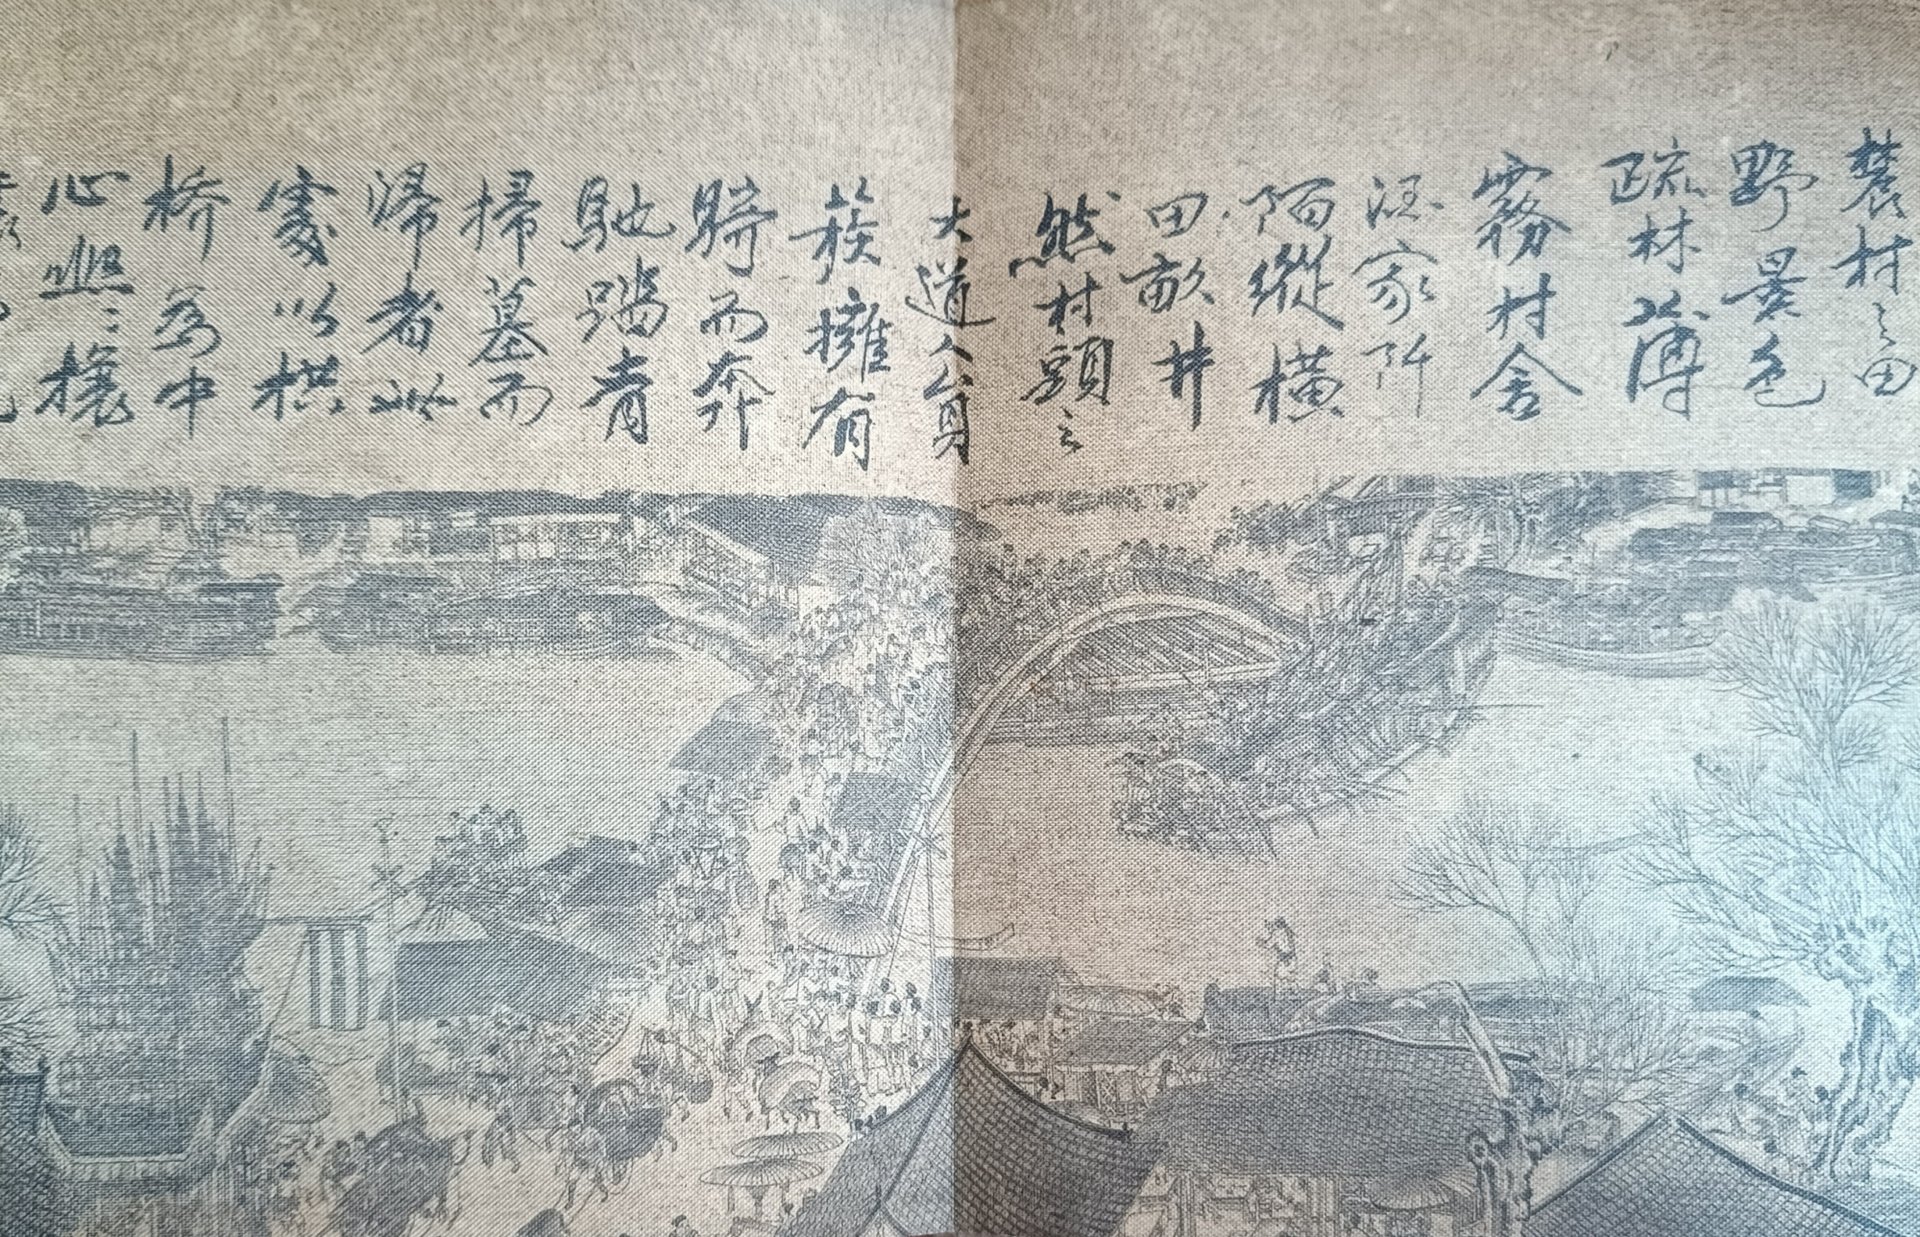 農村之田
野景色
疏林薄
霧村舍
酒家阡
陌縱橫
田畝井
然村頭之
大道人員
蔟擁有
騎而奔
馳踏青
掃墓而
歸者此
處以拱
桥為中
心熙々攘